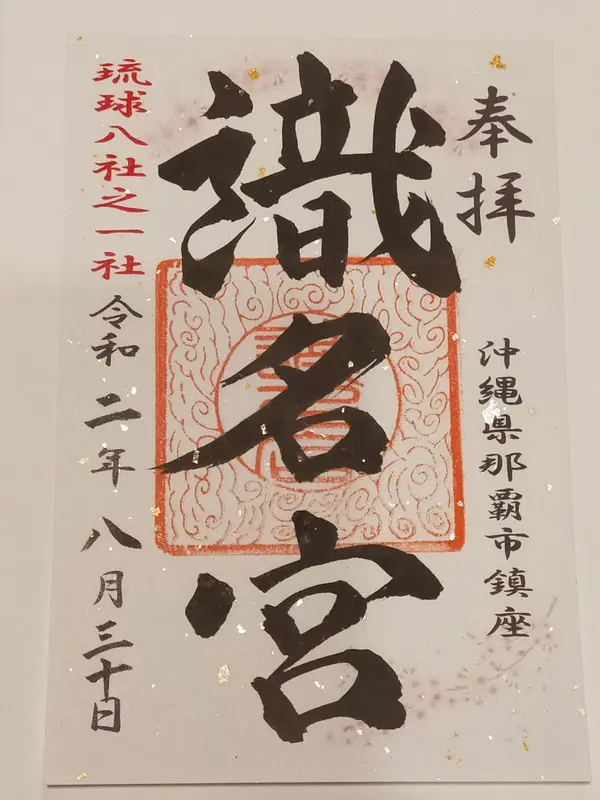 奉拝
沖縄県那覇市鎮座
識名宮
琉球八社之一社
令和二年八月三十日